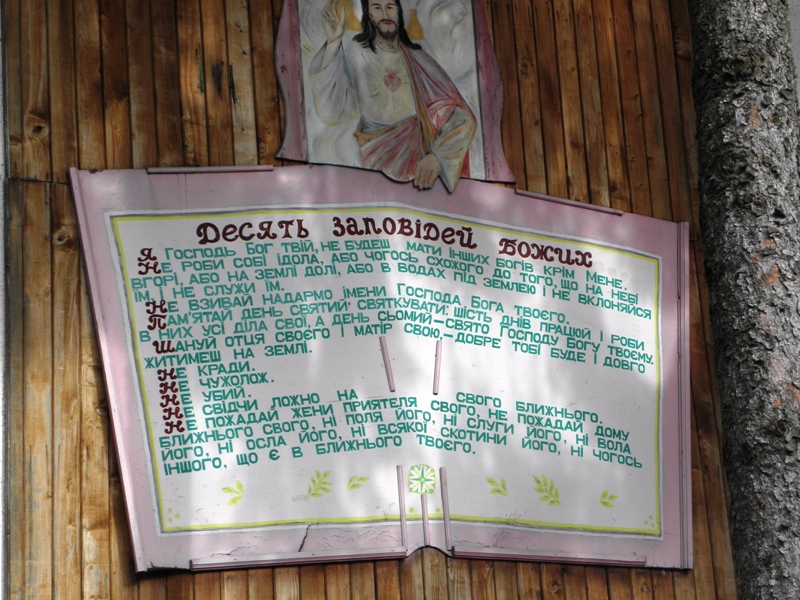 Десять заповідей Божих
Я Господь Бог твій, не будеш мати інших богів крім Мене.
Не роби собі ідола, або чогось схожого до того, що на небі
вгорі, або на землі долі, або в водах під землею і не вклоняйся
їм, і не служи їм.
Не взивай надармо імени Господа Бога твоего.
Пам'ятай день святий святкувати: шість днів працюй і роби
в них усі діла свої, а день сьомий–свято Господу Богу твоєму.
Шануй отця своєго і матір свою,–добре тобі буде і довго
житимеш на землі.
Не кради.
Не чужолож.
Не убий.
Не свідчи ложно на свого ближнього.
Не пожадай жени приятеля свого, не пожадай дому
ближнього свого, ні поля його, ні слуги його, ні вола
його, ні осла його, ні всякої скотини його, ні чогось
іншого, що є в ближнього твоєго.